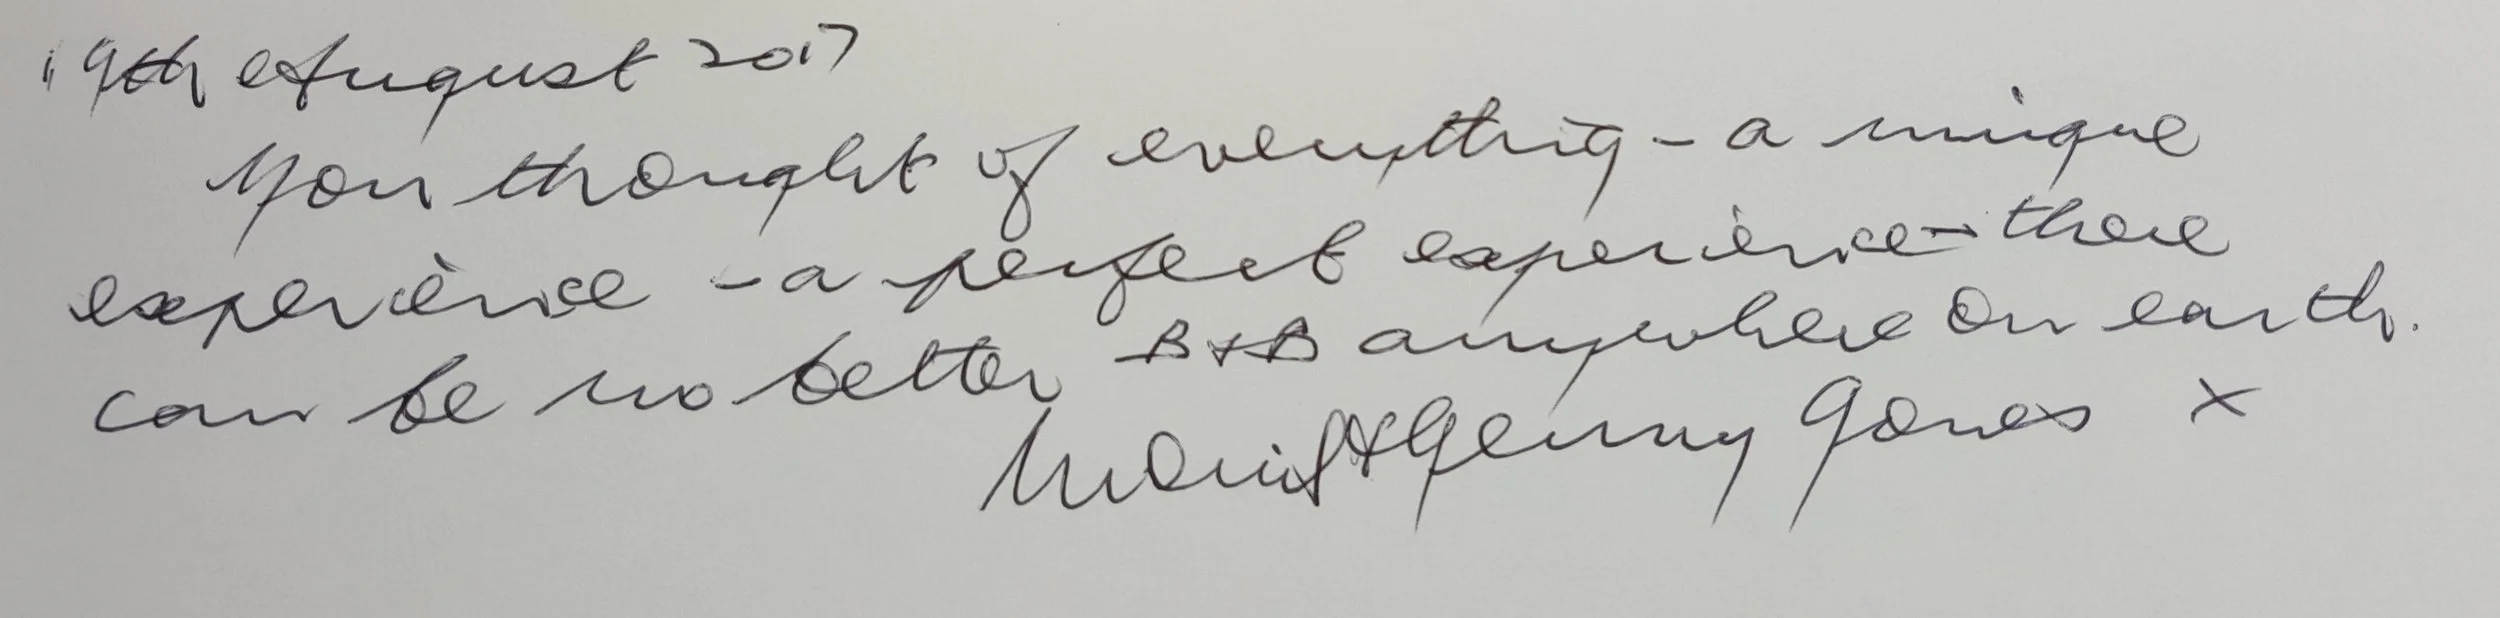 19th August 2017
You thought of everything - a unique
experience - a perfect experience - there
can be no better B+B anywhere on earth.
& Jenny Jones x